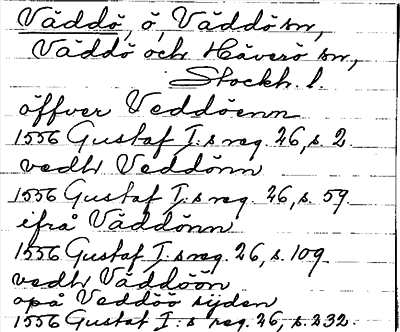 Väddö, ö, Väddö sn,
Väddö och Häverö sn,
Stockh. l.
öffver Veddöenn
1556 Gustaf I:s reg. 26, s. 2.
vedh Veddönn
1556 Gustaf I:s reg. 26, s. 59
ifrå Väddönn
1556 Gustaf I:s reg. 26, s. 109
vedh Väddöön
opå Veddöö sijden
1556 Gustaf I:s reg. 26, s. 232.